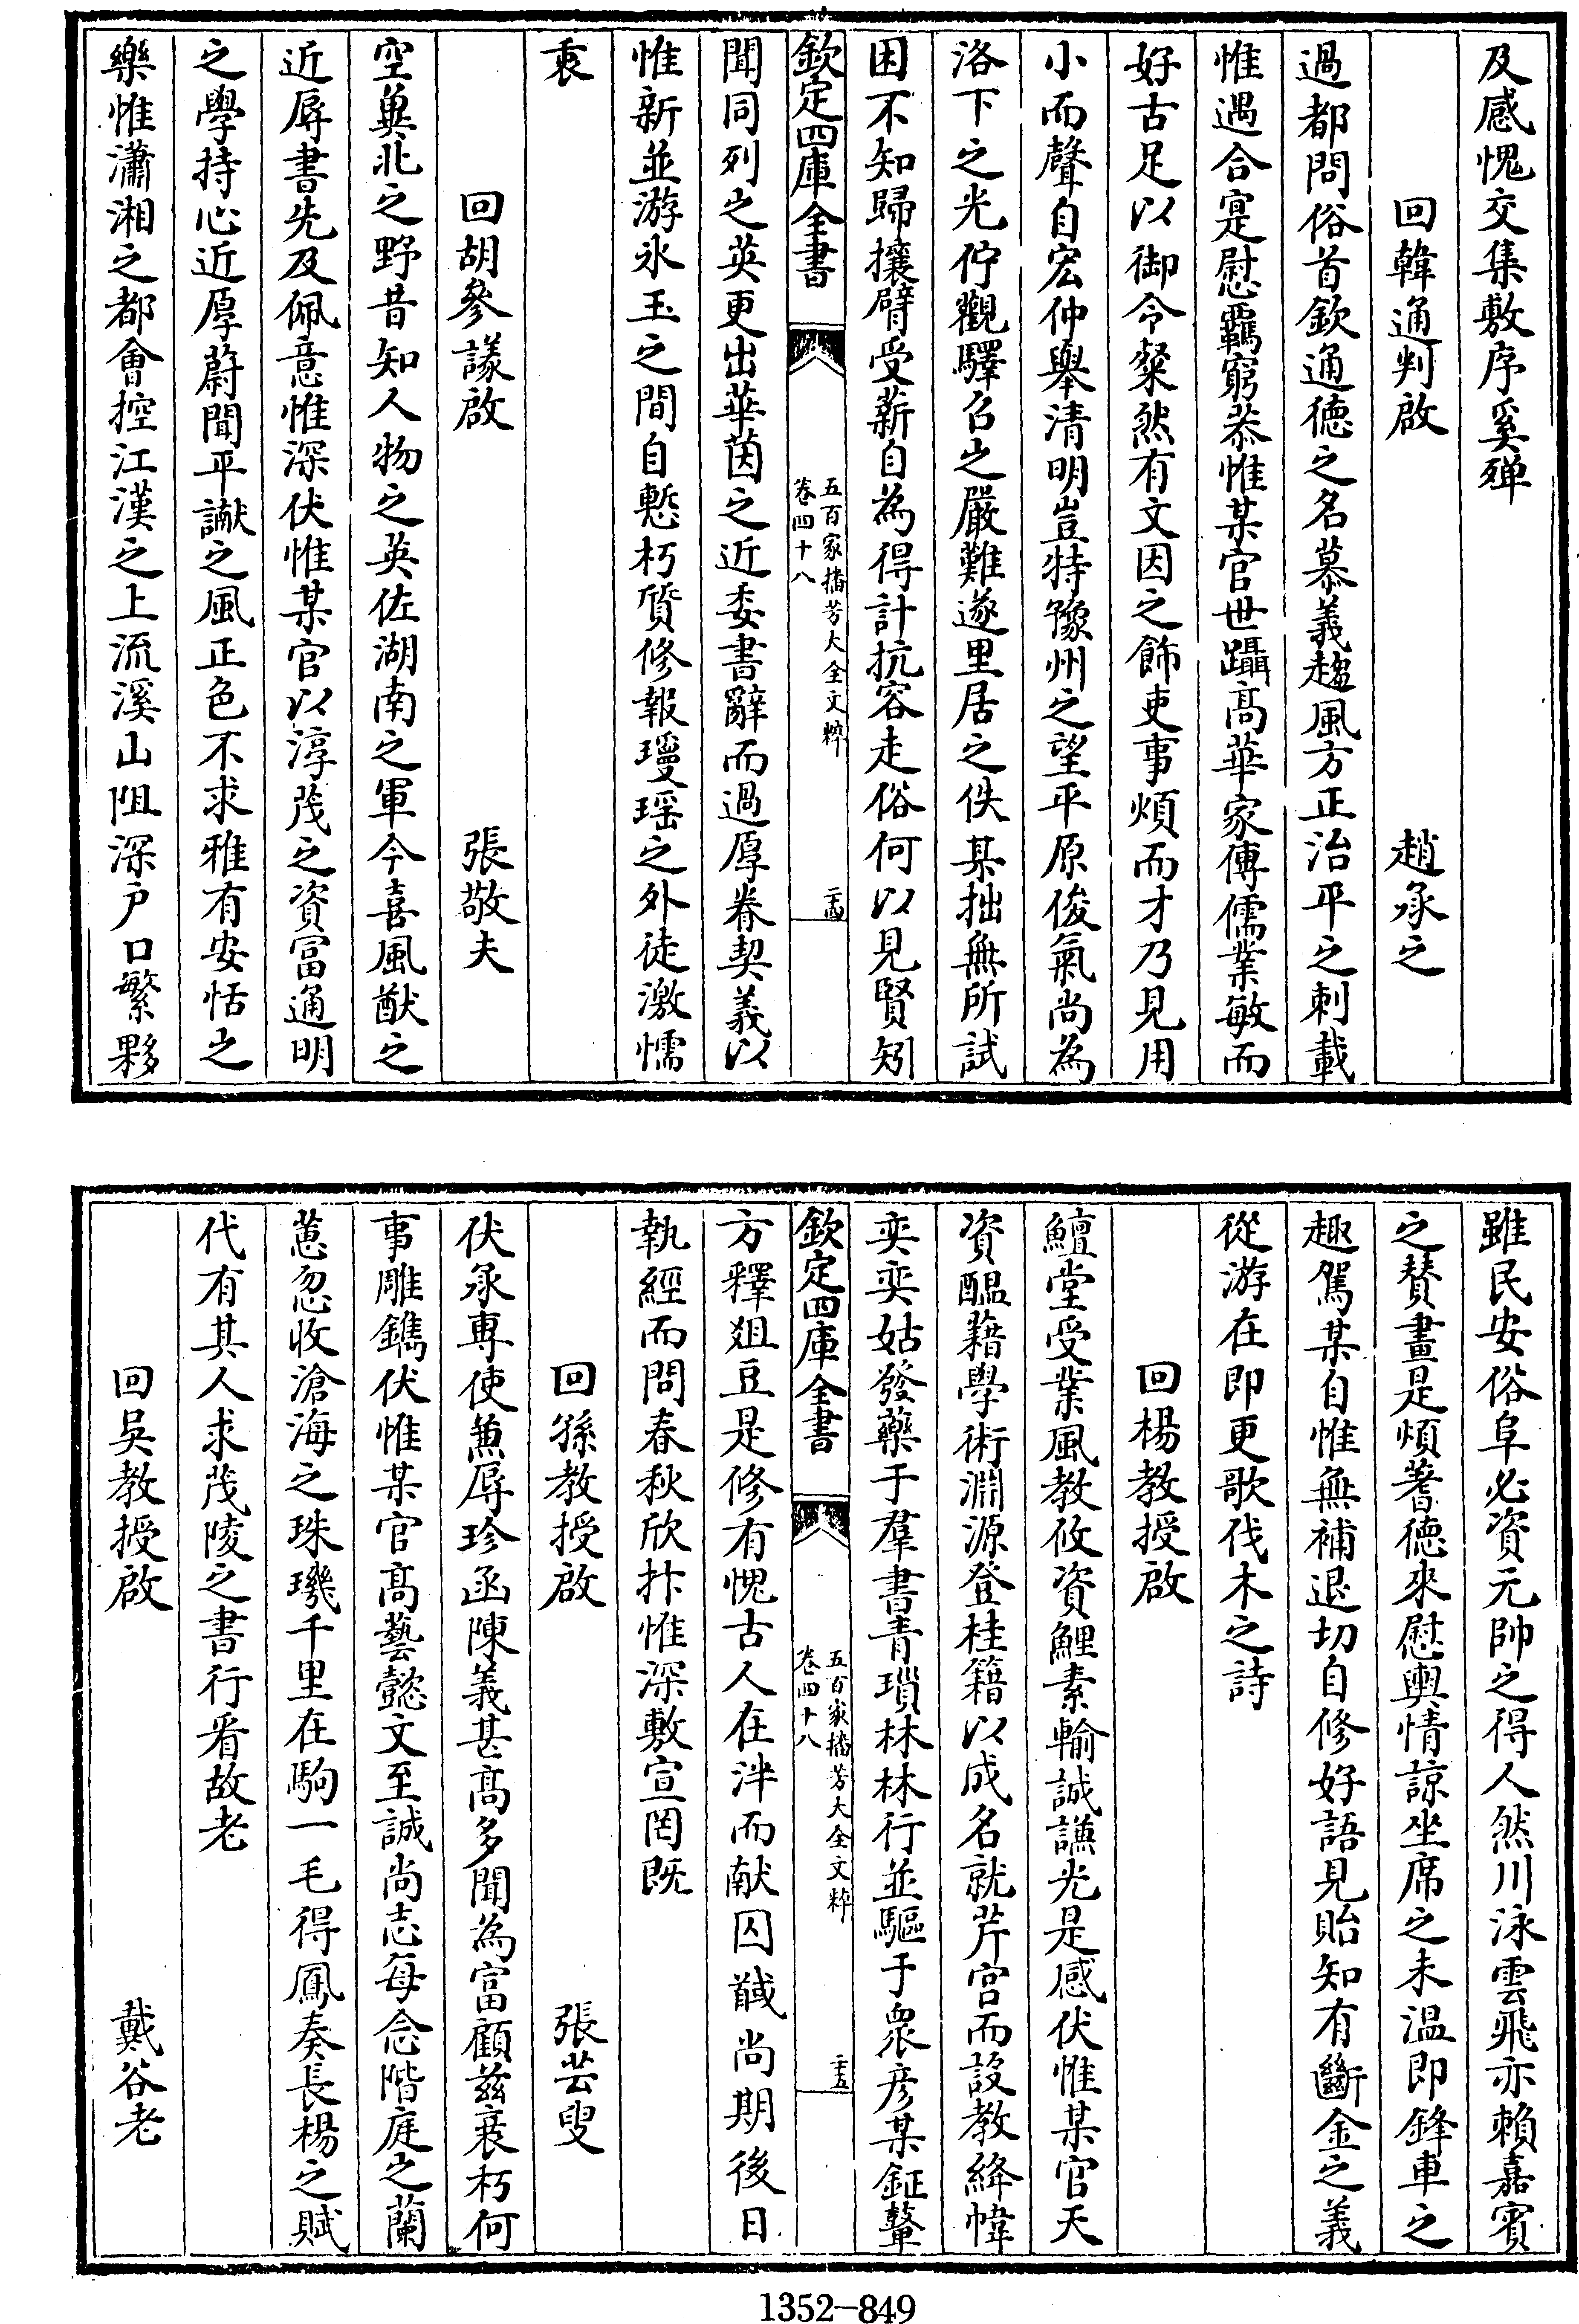 及感愧交集敷序奚殫
回韓通判啟 趙承之
過都問俗首欽通徳之名慕義趨風方正治平之刺載
惟遇合寔慰羈窮恭惟某官世躡髙華家傳儒業敏而
好古足以御今粲然有文因之飾吏事煩而才乃見用
小而聲自宏仲舉清明豈特豫州之望平原俊氣尚為
洛下之光佇觀驛召之嚴難遂里居之佚某拙無所試
困不知歸攘臂受薪自為得計抗容走俗何以見賢矧
欽定四庫全書
五百家播芳大全文粹
卷四十八
二十四
聞同列之英更出華茵之近委書辭而過厚眷契義以
惟新並游氷玉之間自慙朽質修報瓊瑶之外徒激懦
衷
回胡參議啟 張敬夫
空冀北之野昔知人物之英佐湖南之軍今喜風猷之
近辱書先及佩意惟深伏惟某官以淳茂之資富通明
之學持心近厚蔚聞平讞之風正色不求雅有安恬之
樂惟瀟湘之都會控江漢之上流溪山阻深户口繁夥
雖民安俗阜必資元帥之得人然川泳雲飛亦賴嘉賓
之賛畫是煩蓍徳來慰輿情諒坐席之未温即鋒車之
趣駕某自惟無補退切自修好語見貽知有斷金之義
從游在即更歌伐木之詩
回楊教授啟
鱣堂受業風教攸資鯉素輸誠謙光是感伏惟某官天
資醖藉學術淵源登桂籍以成名就芹宫而設教絳幃
奕奕姑發藥于羣書青瑣林林行並驅于衆彦某鉦鼙
欽定四庫全書
五百家播芳大全文粹
卷四十八
二十五
方釋俎豆是修有愧古人在泮而献囚馘尚期後日
執經而問春秋欣抃惟深敷宣罔既
回孫教授啟 張芸叟
伏承專使兼辱珍函陳義甚髙多聞為富顧兹衰朽何
事雕鐫伏惟某官髙藝懿文至誠尚志每念階庭之蘭
蕙忽收滄海之珠璣千里在駒一毛得鳳奏長楊之賦
代有其人求茂陵之書行看故老
回吳教授啟 戴谷老
1352—849